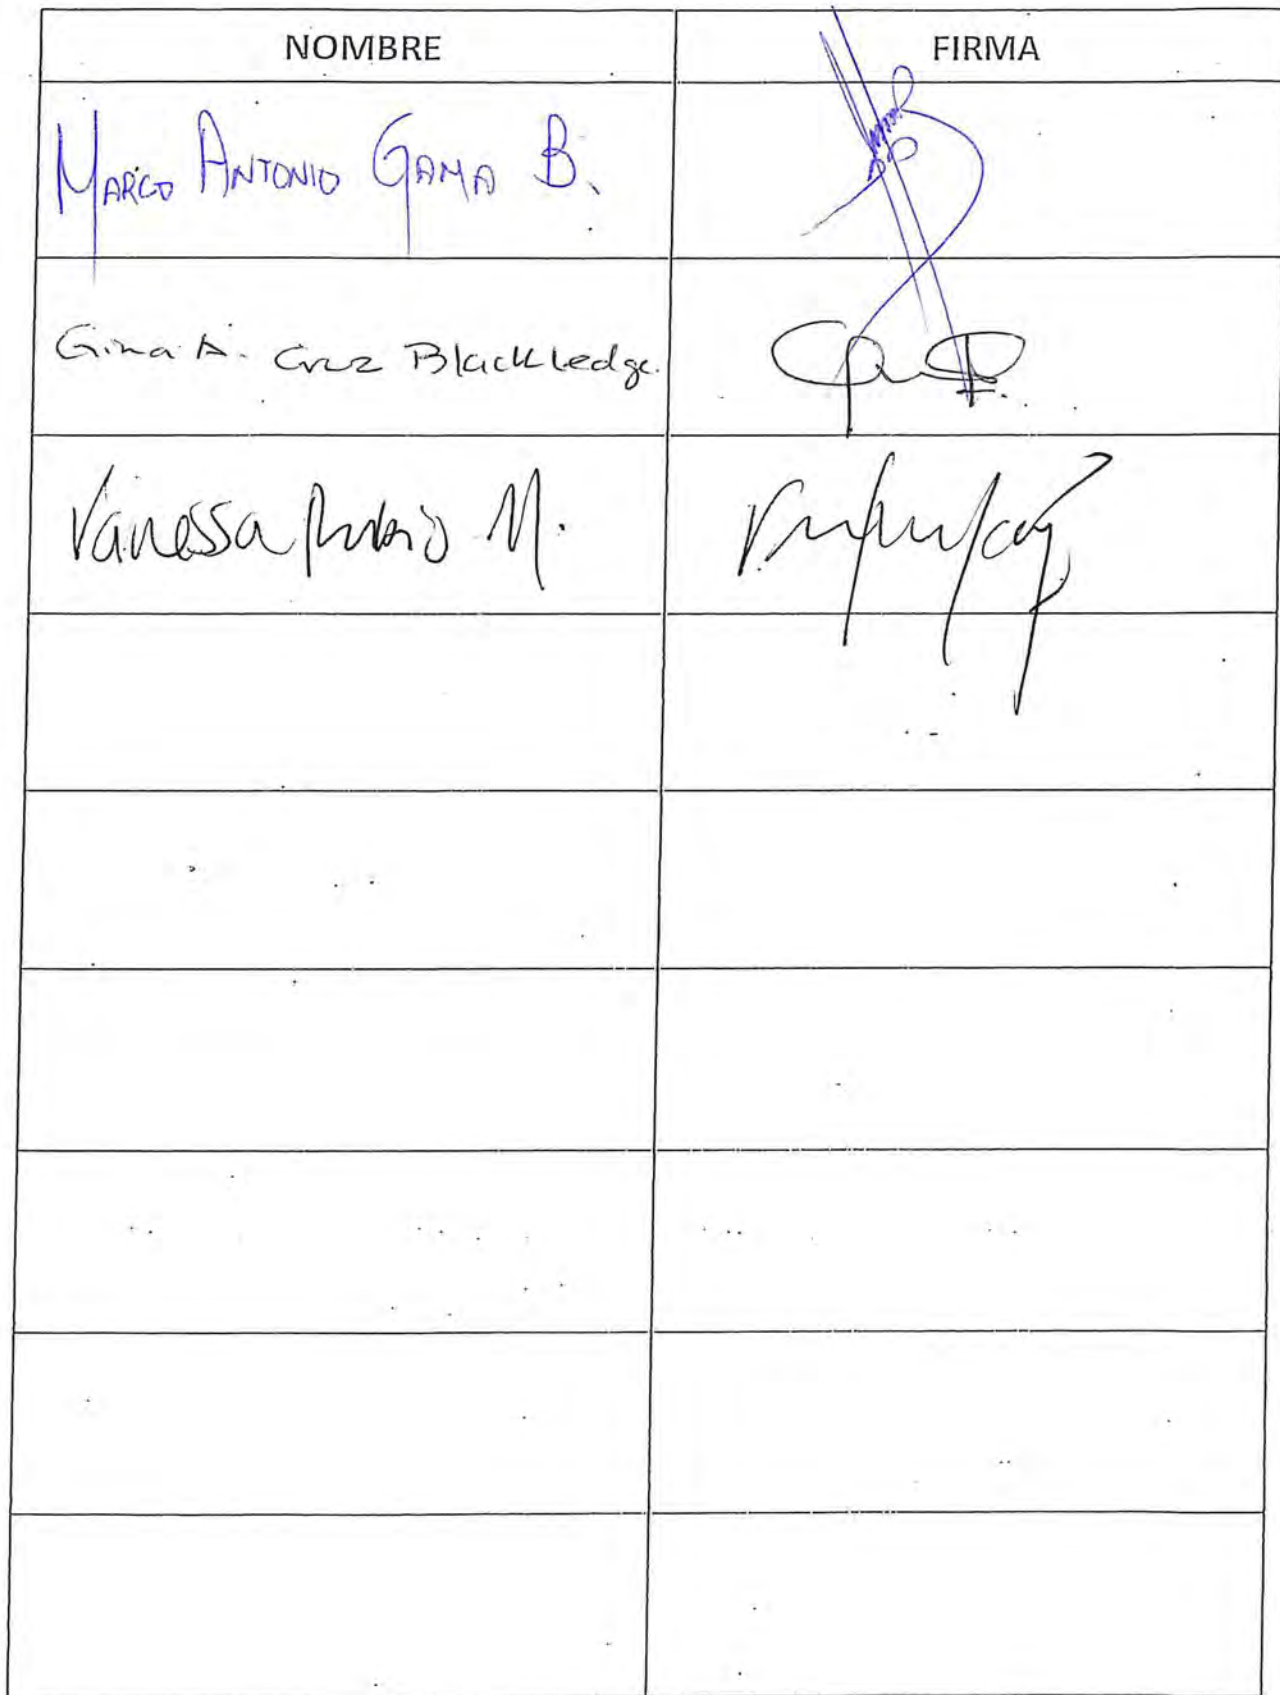 NOMBRE FIRMA
MARCO ANTONIO GAMA B.
Gina A. Cruz Blackledge.
Vanessa Rubio M.